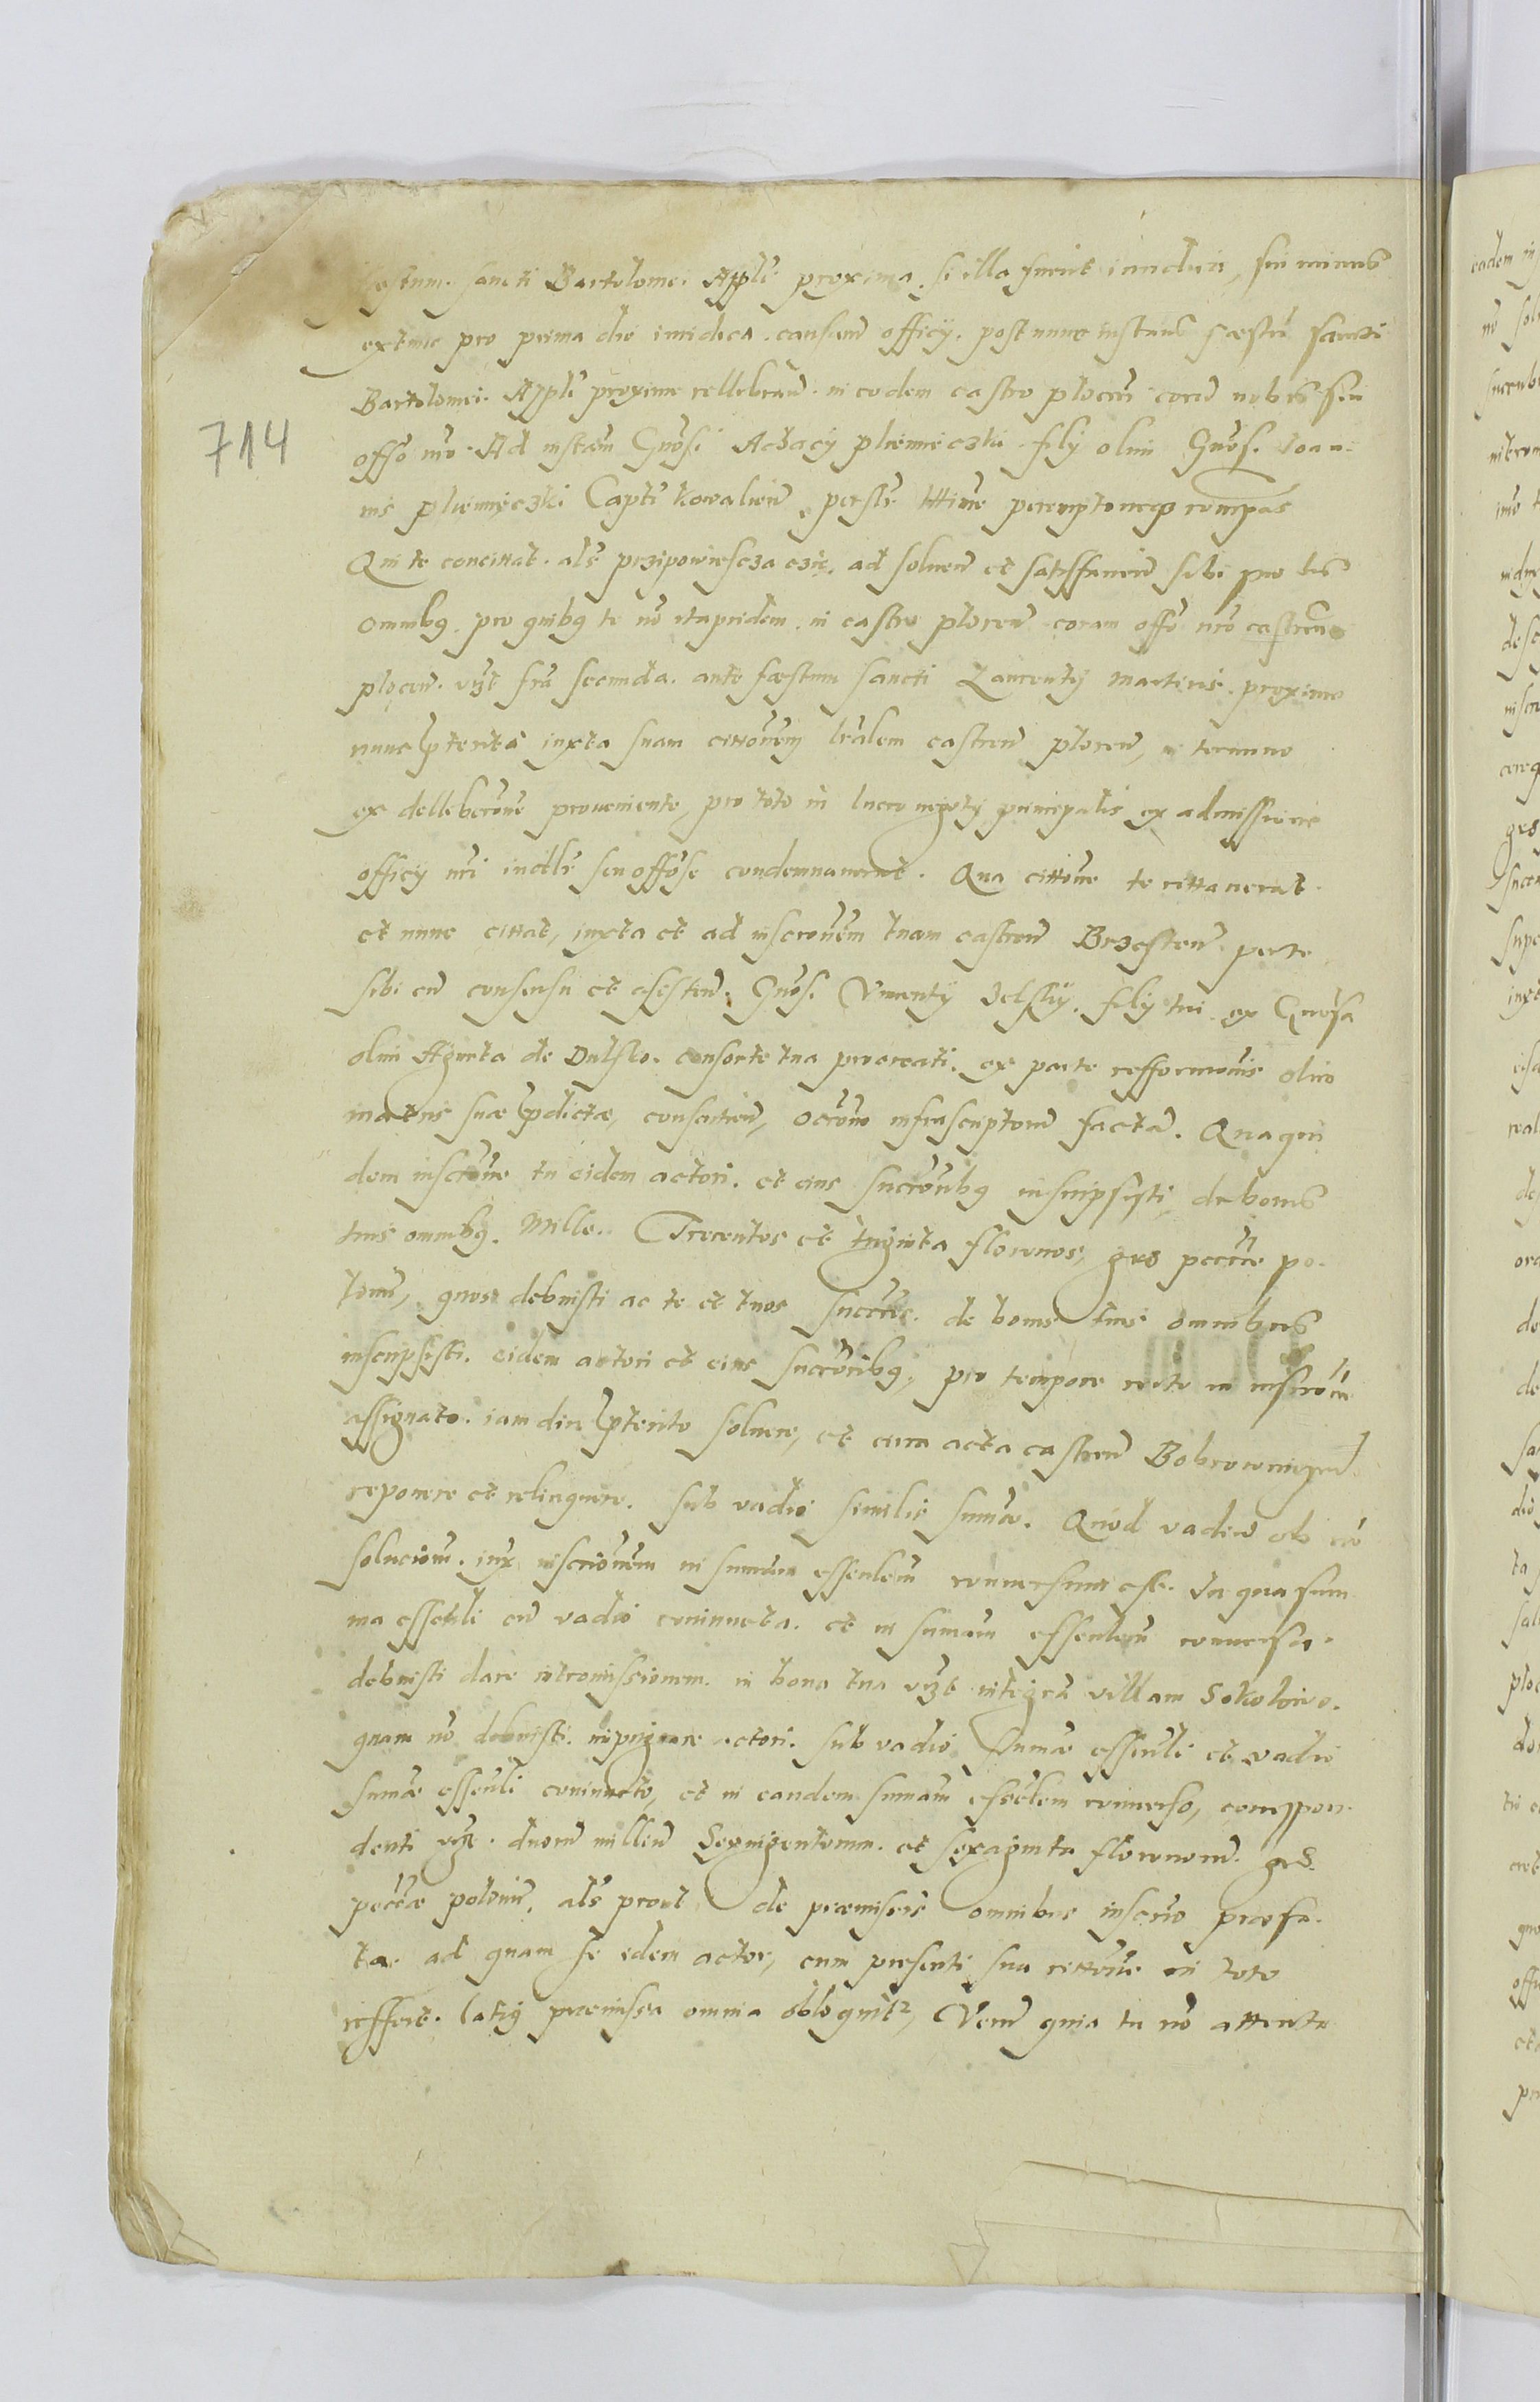 festum. sancti Bartolomei Appli proxima. si illa fuerit iuridica, sin minus
extunc pro prima die iuridica. causarum officij. post nunc instans fæstum sancti
Bartolomei. Appli proxime cellebrand. in eodem castro plocen coram nobis seu
714
offo nro. Ad instam Gnosi Achacij plieniieczki filij olim Gnosi. Joan-
nis plieniieczki Capti kowalien, persr littime peremptorieqz compas
Qui te concittat. als przipowiescza czie, ad soluen et satisffacien sibi pro his
omnibq. pro quibq te no itapridem. in castro plocen coram offo nro castren
plocen. vizt fra secunda. ante fæstum sancti Laurentij martiris. proxime
nunc pterita iuxta suam cittonem lralem castren plocen, in termino
ex delleberone proueniente, pro toto in lucro negotij principalis ex admissione
officij nri iudlr seu offose condemnauerat. Qua cittone te cittauerat.
et nunc cittat, iuxta et ad inscronem tuam castren Brzesten. per te
sibi cu consensu et asisten. Gnosi Vincentij filij tui ex Gnosa
olim Agneta de Dulsko. consorte tua procreati. ex parte refformonis olim
matris suæ pdictæ, conscitien, ocrone infrascriptorum factã. Qua qui
dem inscrone tu eidem actori. et eius succrombq inscripsisti de bonis
tuis omnibq. Mille. Trecentos et triginta florenos, gros peccie po-
lonie, quos debuisti ac te et tuos succres. de bonis tuis omnibus
inscripsisti. eidem actori et eius succrombq, pro tempore certo in inscrone
assignato. iam diu pterito soluere, et circa acta castren Bobrownicen.
reponere et relinquere. sub vadio similis sumæ. Quod vadiu ob no
soluciom. iux inscrionem in sumam essenlem conuersum est. In qua sum
ma essenli cu vadio coniuncta. et in sumam essenlem conuersa.
debuisti dare intromissionem. in bona tua vizt integra villam Sokolowo.
quam no debuisti. inpugnare actori. sub vadio sumæ essenli et vadio
sumæ essenli coniuncto, et in eandem sumam essenlem conuerso, correspon-
denti vizt. duorum millium Sexingentorum. et sexaginta florenorum. gros.
pecciæ polonie, als prout de præmissis omnibus inscrio præfa-
ta. ad quam se idem actor, cum presenti sua cittone in toto
reffert. latiq præmissa omnia obloquitr, Verum quia tu no attenta